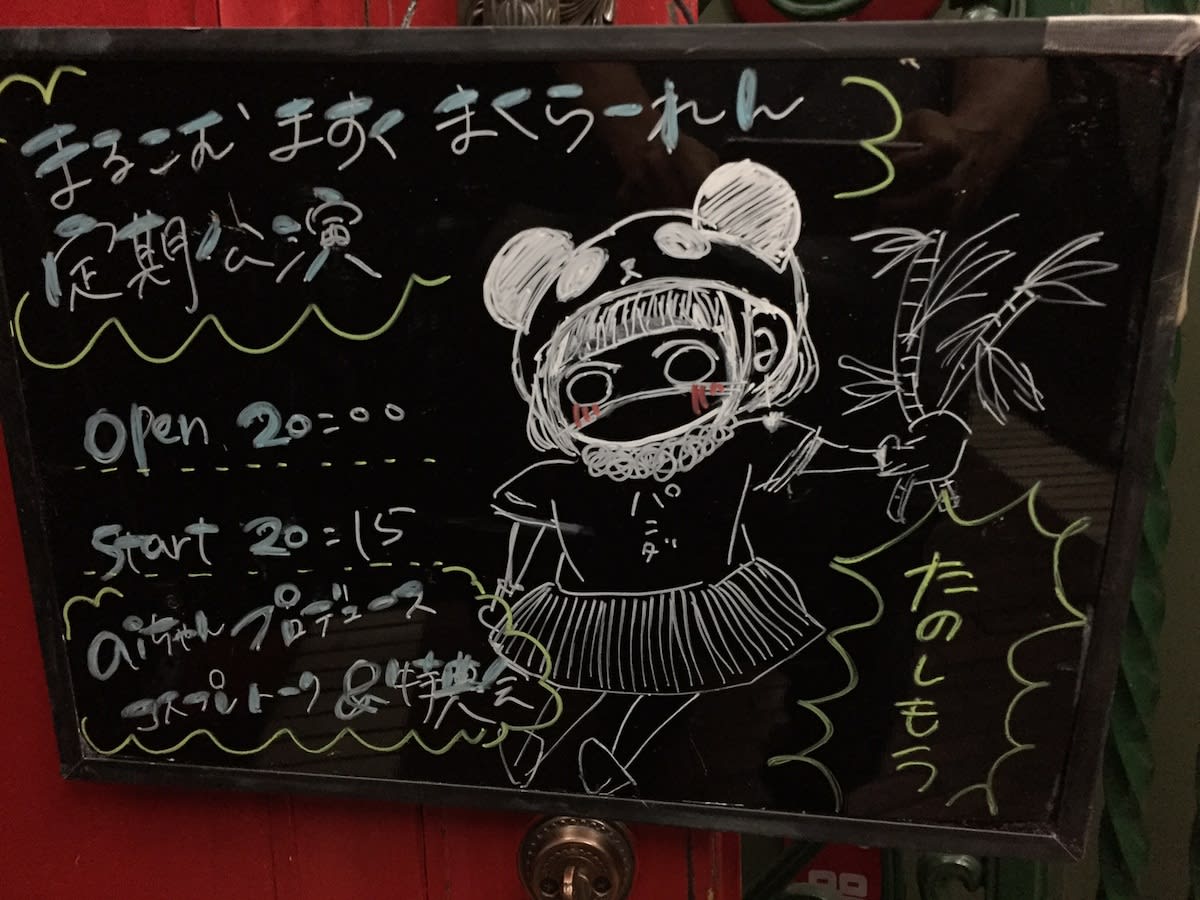 まるこむ ますく まくらーれん
定期公演
open 20:00
start 20:15
aiちゃんプロデュース
コスプレトーク&特典会
パンダ
たのしもう